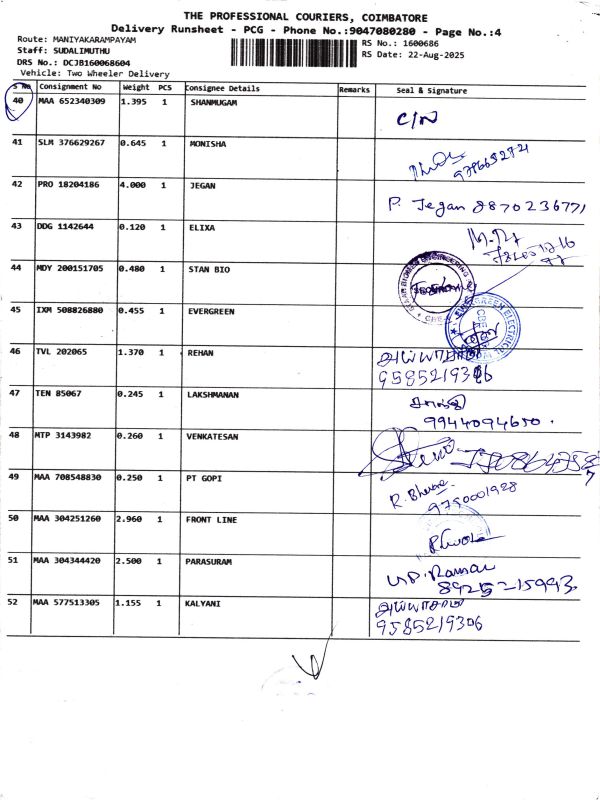 THE PROFESSIONAL COURIERS, COIMBATORE
Delivery Runsheet - PCG - Phone No.:9047080280 - Page No.:4
Route: MANIYAKARAMPAYAM
RS No.: 1600686
Staff: SUDALIMUTHU
RS Date: 22-Aug-2025
DRS No.: DCJB160068604
Vehicle: Two Wheeler Delivery
S No Consignment No Weight PCS Consignee Details Remarks Seal & Signature
40 MAA 652340309 1.395 1 SHANMUGAM C/N
41 SLM 376629267 0.645 1 MONISHA
42 PRO 18204186 4.000 1 JEGAN P. Jegan 8870236771
43 DDG 1142644 0.120 1 ELIXA
44 MDY 200151705 0.480 1 STAN BIO
45 IXM 508826880 0.455 1 EVERGREEN EVERGREEN ELECTRICAL
46 TVL 202065 1.370 1 REHAN
9585219306
47 TEN 85067 0.245 1 LAKSHMANAN
9944094650.
48 MTP 3143982 0.260 1 VENKATESAN
49 MAA 708548830 0.250 1 PT GOPI R. Bhavani
9790001928
50 MAA 304251260 2.960 1 FRONT LINE
51 MAA 304344420 2.500 1 PARASURAM
89252-15993
52 MAA 577513305 1.155 1 KALYANI
9585219306